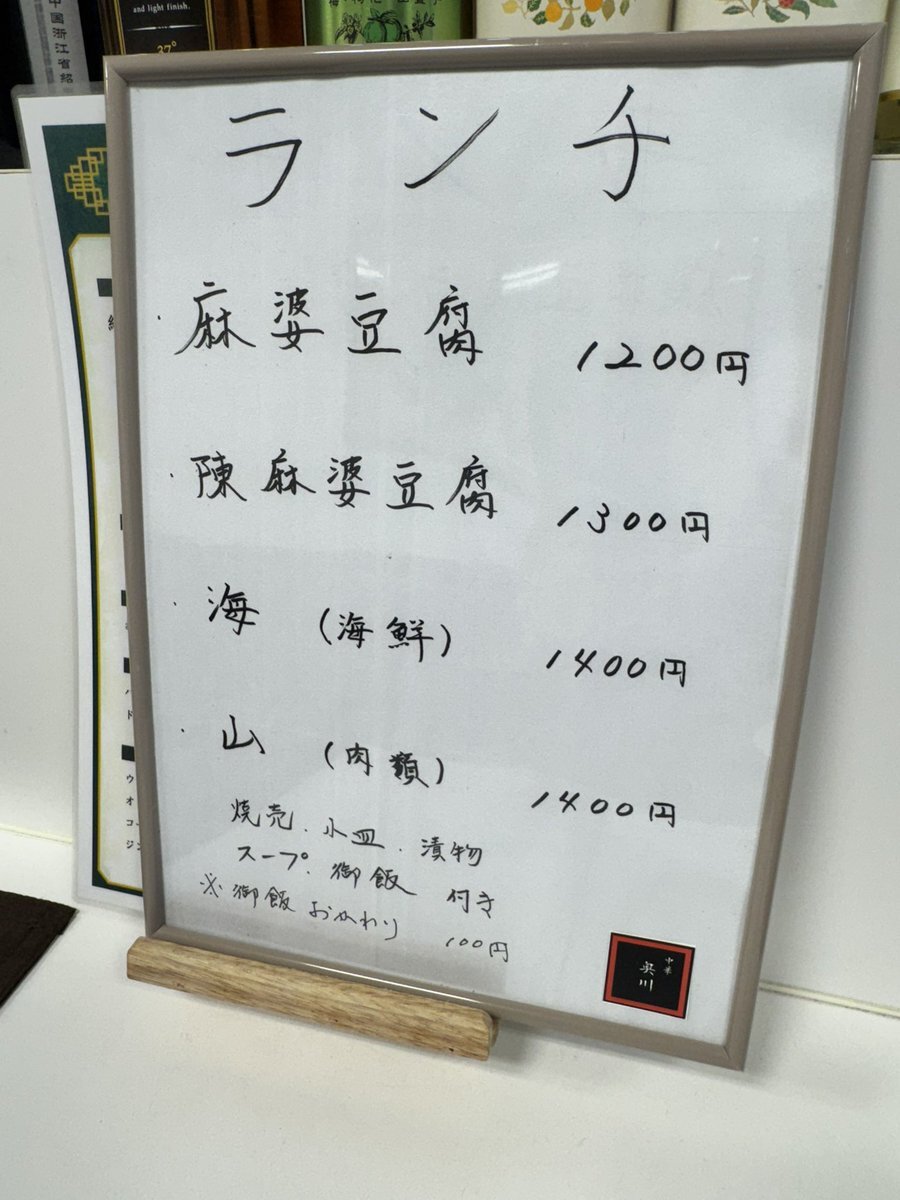 and light finish.
37°
中国浙江省紹
ランチ
・麻婆豆腐 1200円
・陳麻婆豆腐 1300円
・海 (海鮮) 1400円
・山 (肉類) 1400円
焼売・小皿・漬物
スープ・御飯 付き
※御飯 おかわり 100円
中華
奥川